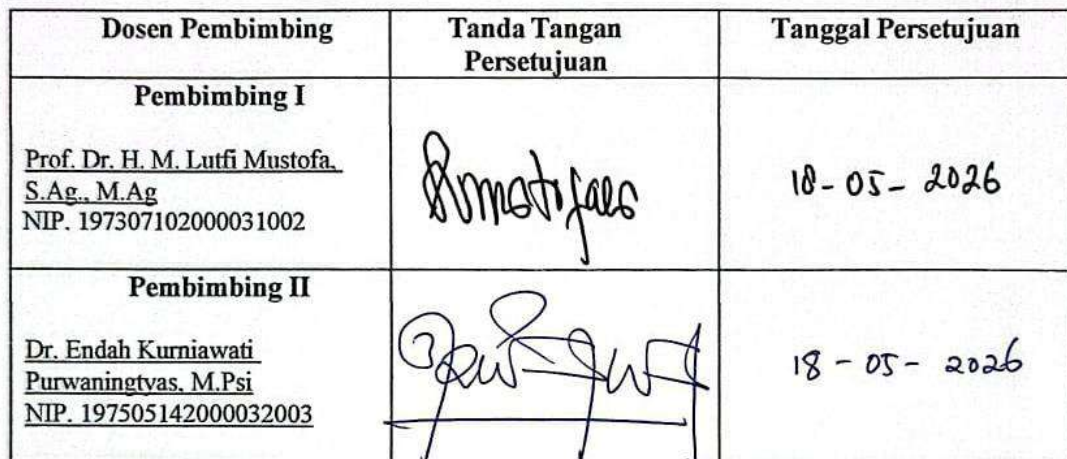 Dosen Pembimbing
Tanda Tangan
Persetujuan
Tanggal Persetujuan
Pembimbing I
Prof. Dr. H. M. Lutfi Mustofa,
S.Ag., M.Ag
NIP. 197307102000031002
18-05-2026
Pembimbing II
Dr. Endah Kurniawati
Purwaningtyas, M.Psi
NIP. 197505142000032003
18-05-2026